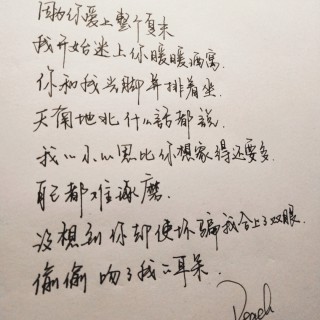 因为你爱上整个夏末
我开始迷上你暖暖酒窝.
你和我光脚并排着坐.
天南地北什么話都說.
我的小心思比你想象得还要多.
自己都难琢磨.
没想到你却使坏骗我合上了双眼.
偷偷吻了我的耳朵.